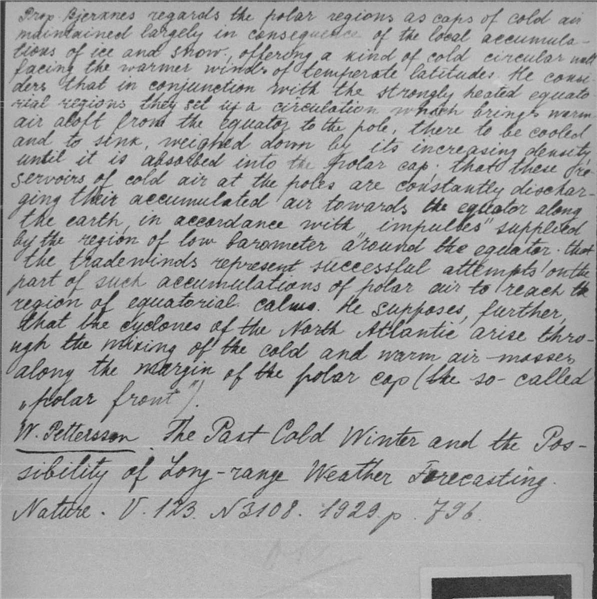 Prof Bjerknes regards the polar regions as caps of cold air
maintained largely in consequence of the local accumula-
tions of ice and snow, offering a kind of cold circular wall
facing the warmer winds of temperate latitudes. He consi-
ders that in conjunction with the strongly heated equato-
rial regions they set up a circulation which brings warm
air aloft from the equator to the pole, there to be cooled
and to sink, weighed down by its increasing density,
until it is absorbed into the polar cap; that these re-
servoirs of cold air at the poles are constantly dischar-
ging their accumulated air towards the equator along
the earth, in accordance with impulses supplied
by the region of low barometer around the equator; that
the tradewinds represent successful attempts on the
part of such accumulations of polar air to reach the
region of equatorial calms. He supposes, further,
that the cyclones of the North Atlantic arise thro-
ugh the mixing of the cold and warm air-masses
along the margin of the polar cap (the so-called
„polar front").
W. Pettersson. The Past Cold Winter and the Pos-
sibility of Long-range Weather Forecasting.
Nature. V. 123. N3108. 1929 p. 796.